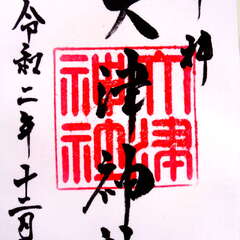 奉拝
大津神社
令和二年十二月
大津
神社